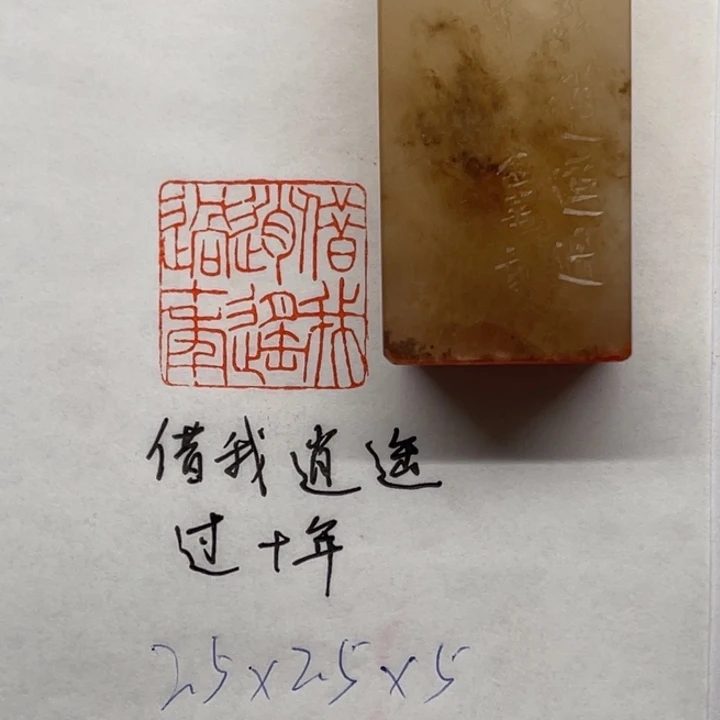 借我逍遥過十年
借我逍遥
过十年
25×25×5